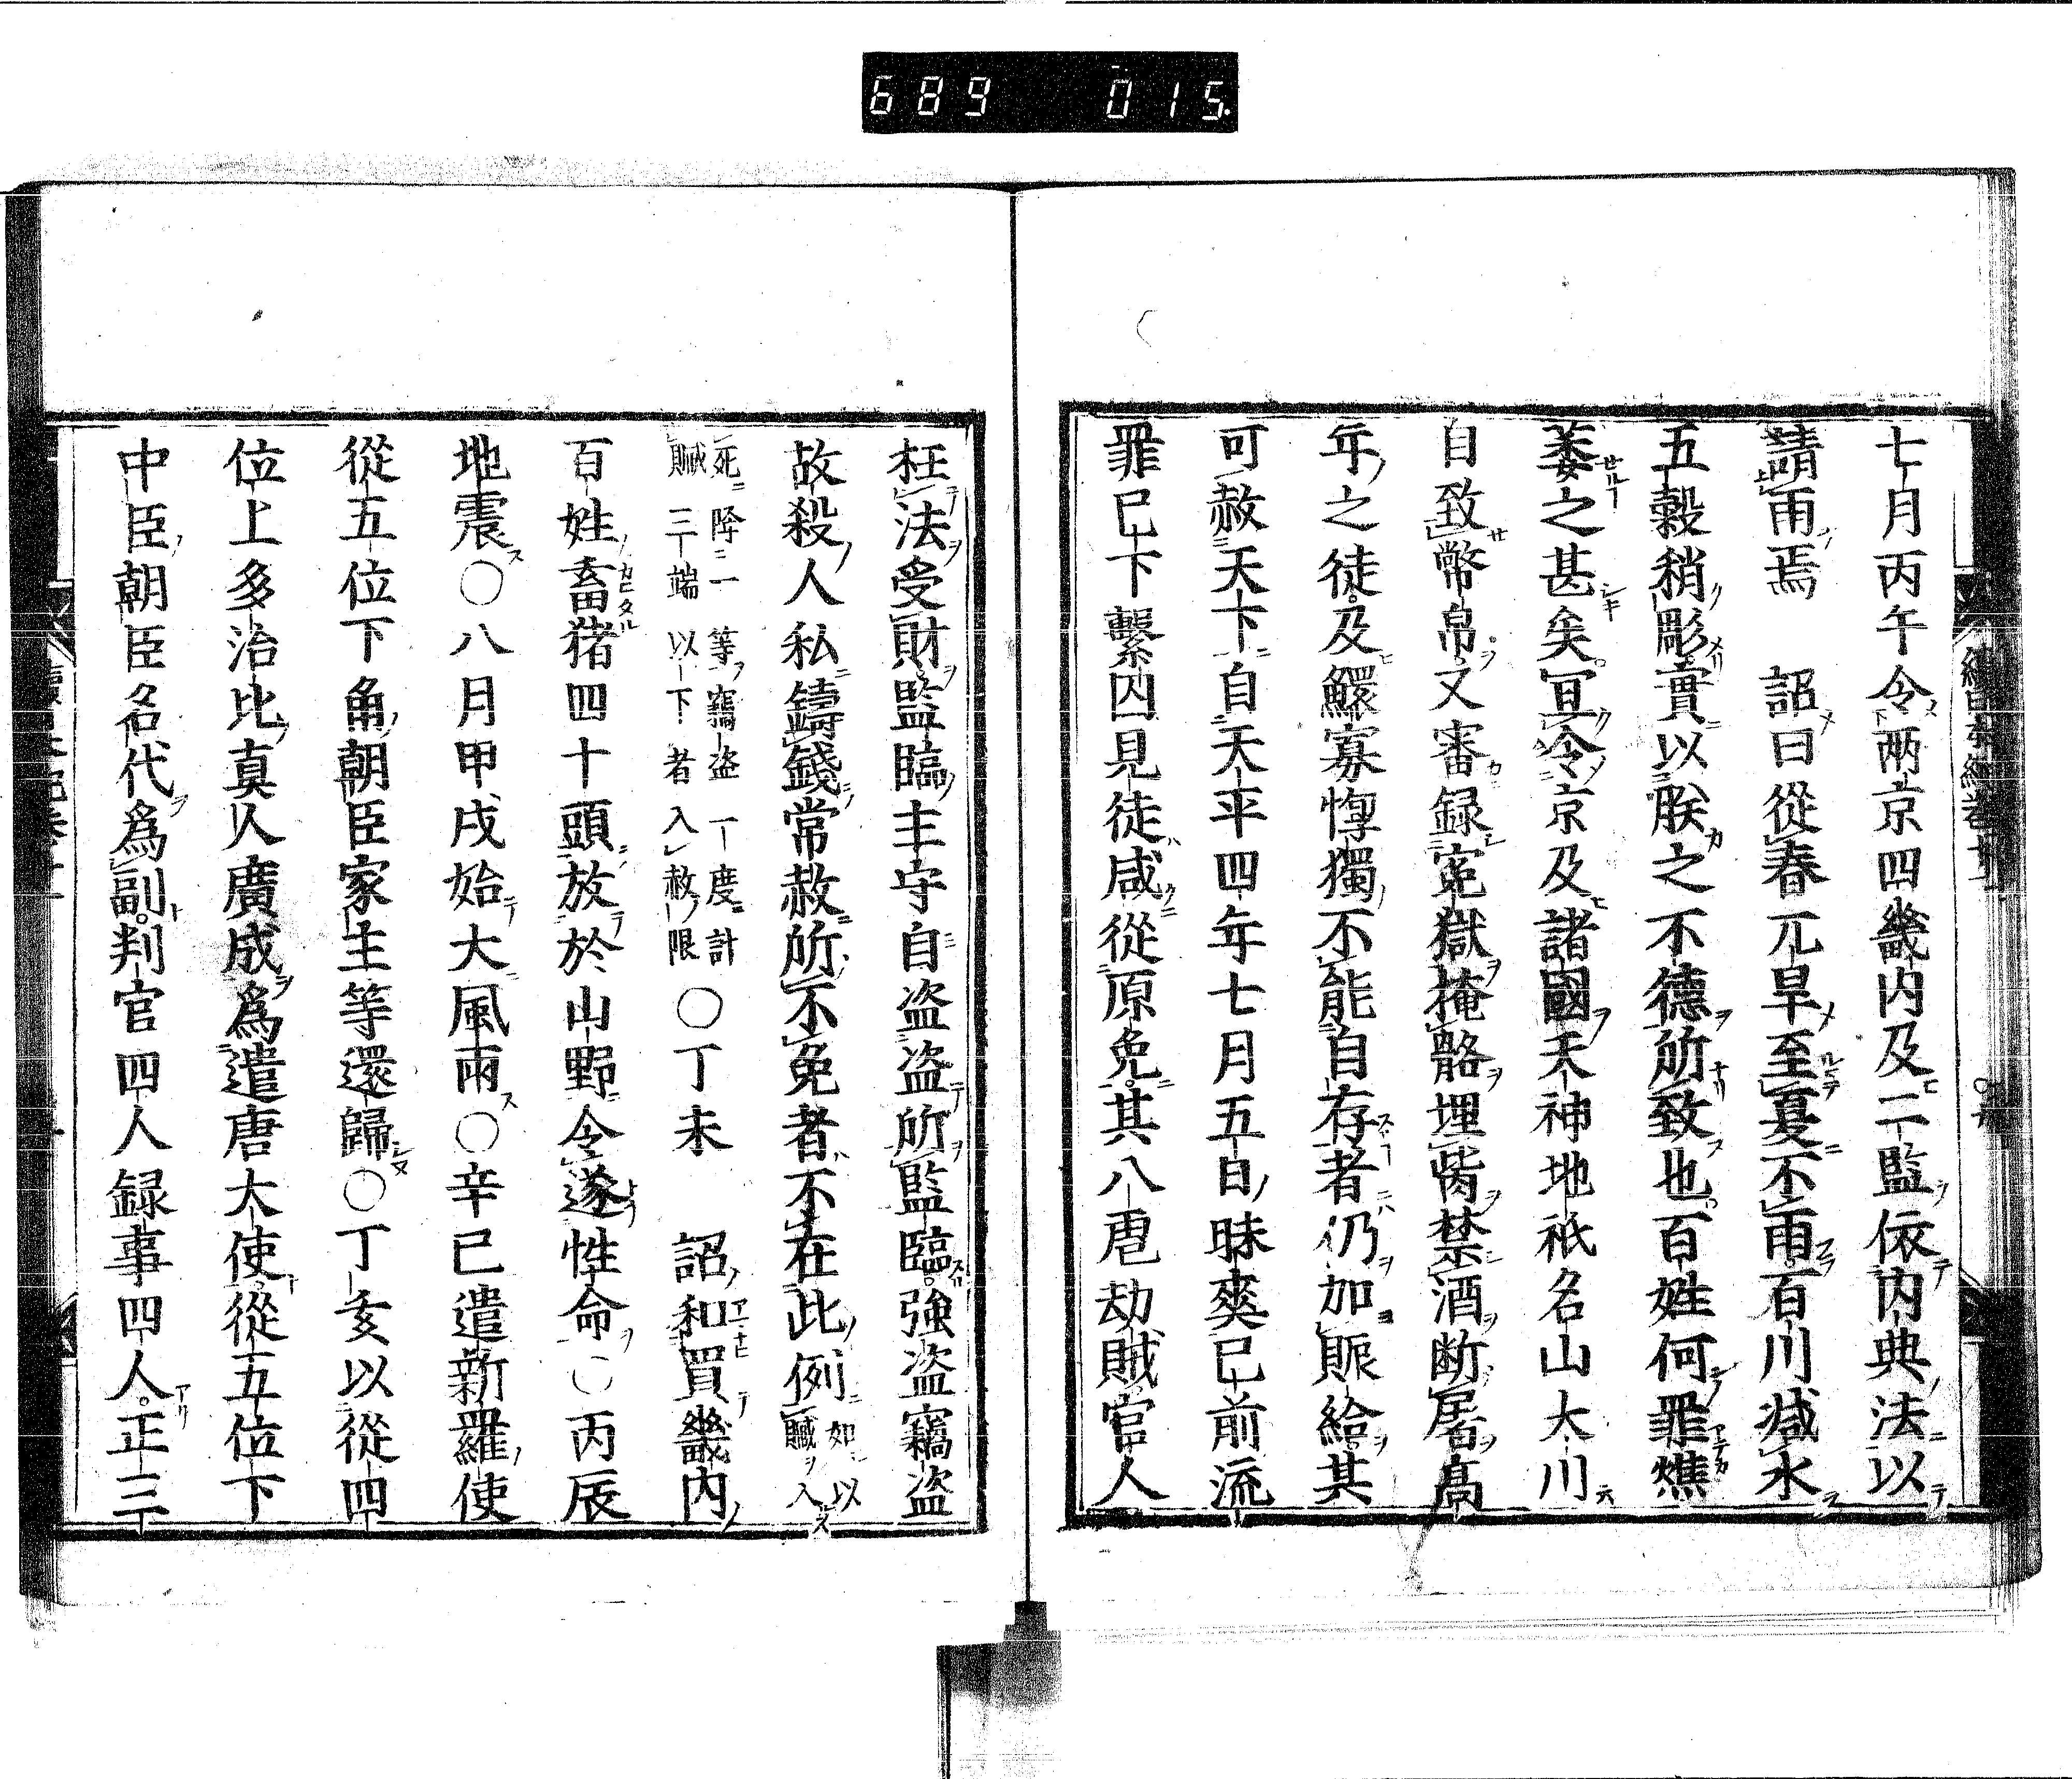 689 015
七月丙午令両京四畿内及二監依内典法以
請雨焉 詔曰從春亢旱至夏不雨百川減水
五穀稍彫實以朕之不德所致也百姓何罪燋
萎之甚矣冝令京及諸國天神地祇名山大川
自致幣帛又審録寃獄掩骼埋胔禁酒断屠高
年之徒及鰥寡惸獨不能自存者仍加賑給其
可赦天下自天平四年七月五日昧爽已前流
罪已下繋囚見徒咸從原免其八虐劫賊官人
枉法受財監臨主守自盗盗所監臨強盗竊盗
故殺人私鑄錢常赦所不免者不在此例如以贓入
死降一等竊盗一度計贓三端以下者入赦限○丁未 詔和買畿内
百姓畜猪四十頭放於山野令遂性命○丙辰
地震○八月甲戌始大風雨○辛巳遣新羅使
從五位下角朝臣家主等還歸○丁亥以從四
位上多治比真人廣成爲遣唐大使從五位下
中臣朝臣名代爲副判官四人録事四人正三